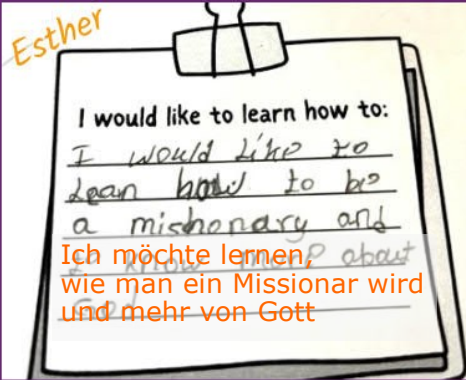 Esther
I would like to learn how to:
I would Like to
Lean how to be
a mishonary and
know more about
Ich möchte lernen,
wie man ein Missionar wird
und mehr von Gott